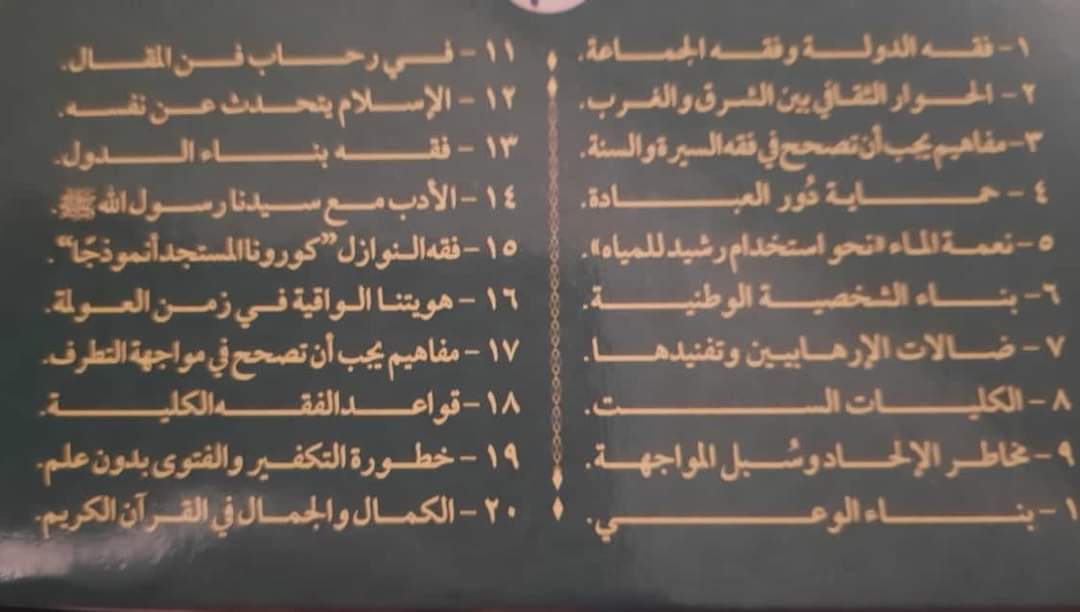 ١- فقه الدولة وفقه الجماعة.
٢- الحوار الثقافي بين الشرق والغرب.
٣- مفاهيم يجب أن تصحح في فقه السيرة والسنة.
٤- حماية دُور العبادة.
٥- نعمة الماء «نحو استخدام رشيد للمياه».
٦- بناء الشخصية الوطنية.
٧- ضلالات الإرهابيين وتفنيدها.
٨- الكليات الست.
٩- مخاطر الإلحاد وسُبل المواجهة.
١- بناء الوعي.
١١- في رحاب فن المقال.
١٢- الإسلام يتحدث عن نفسه.
١٣- فقه بناء الدول.
١٤- الأدب مع سيدنا رسول الله ﷺ.
١٥- فقه النوازل "كورونا المستجد أنموذجًا".
١٦- هويتنا الواقية في زمن العولمة.
١٧- مفاهيم يجب أن تصحح في مواجهة التطرف.
١٨- قواعد الفقه الكلية.
١٩- خطورة التكفير والفتوى بدون علم.
٢٠- الكمال والجمال في القرآن الكريم.